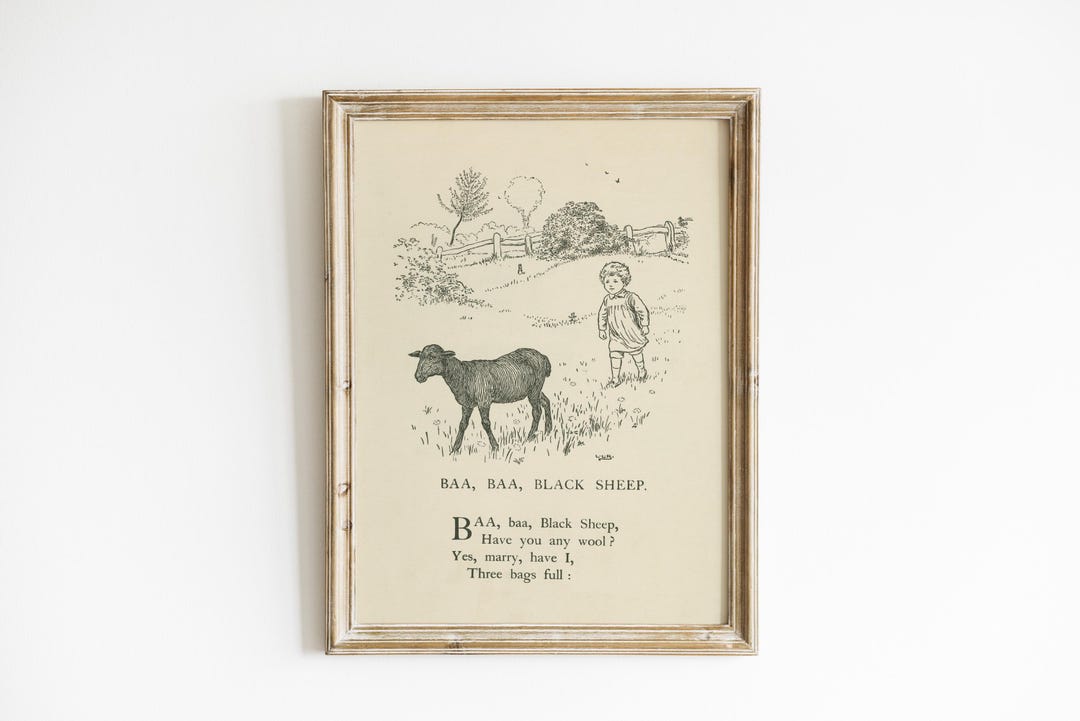 BAA, BAA, BLACK SHEEP.
BAA, baa, Black Sheep,
Have you any wool?
Yes, marry, have I,
Three bags full: